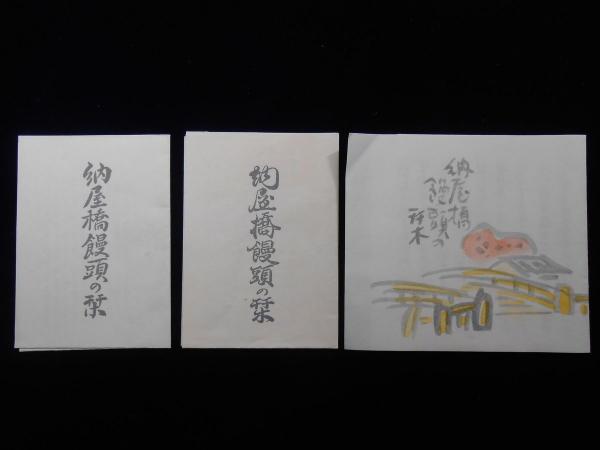 納屋橋饅頭の栞
納屋橋饅頭の栞
納屋橋
饅頭の
栞